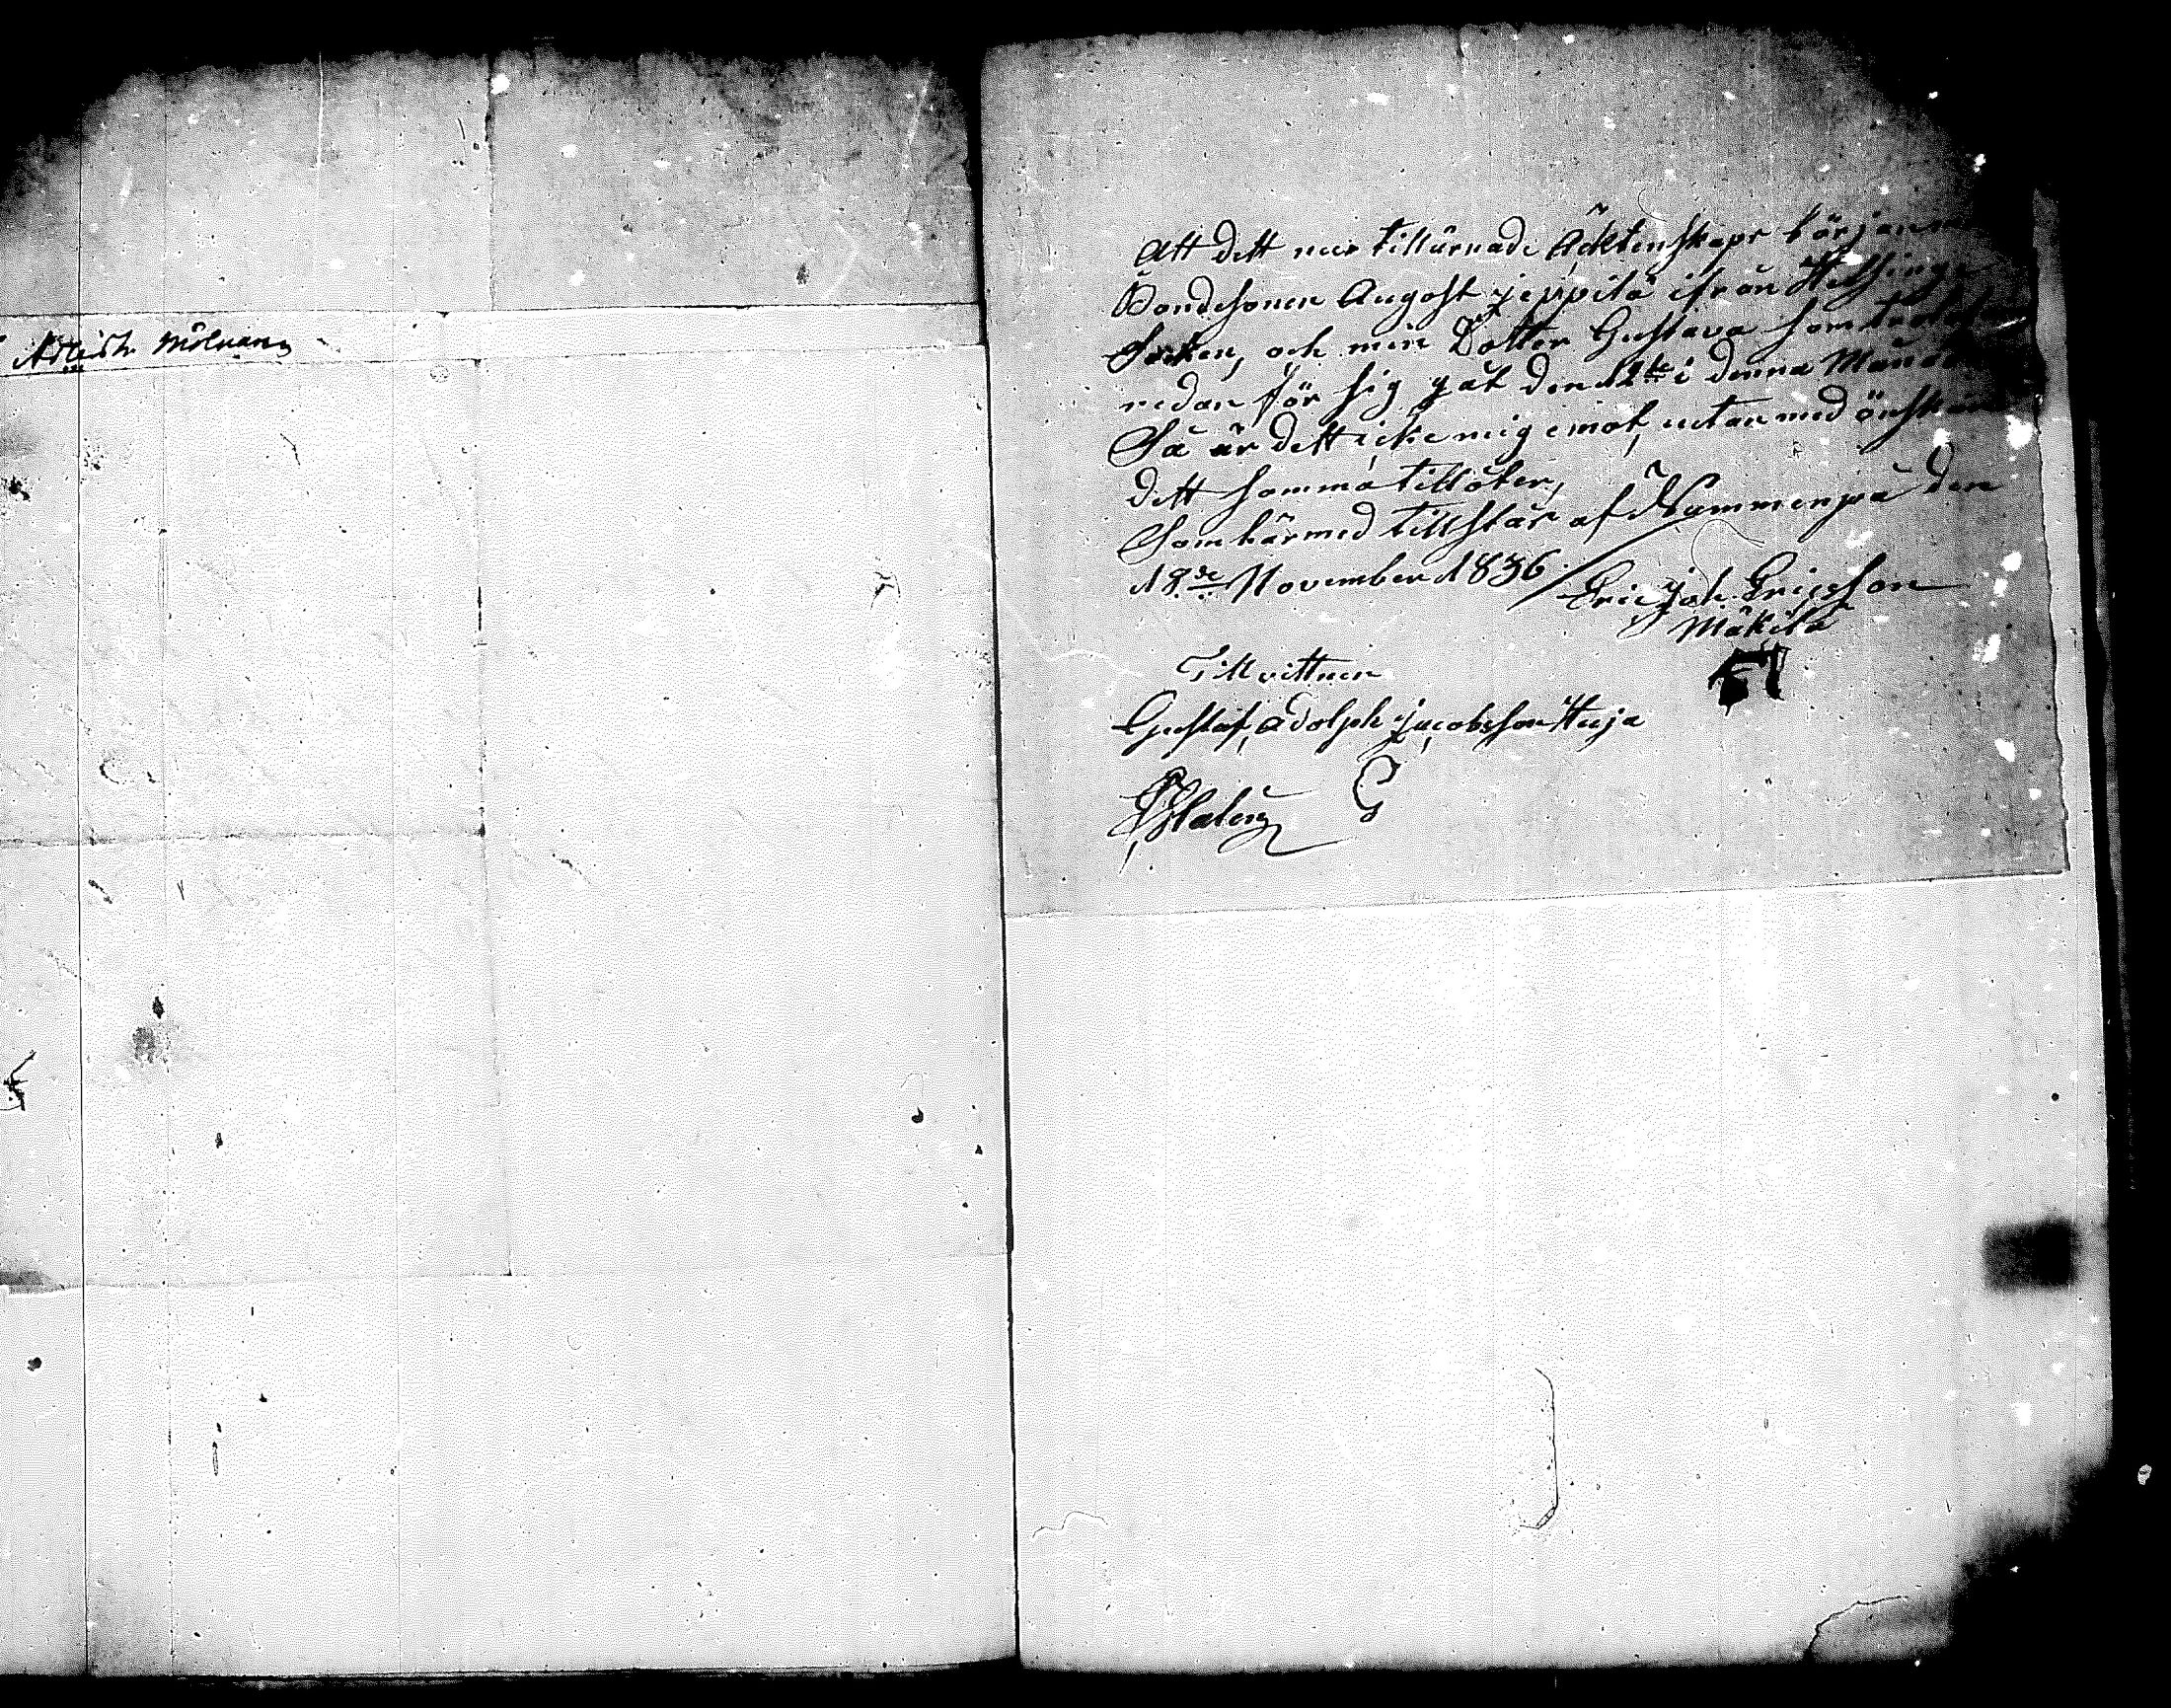 Att dett mer tillärnade Äcktenskaps börjann
Bondesonen August jeppilä ifrån Helsinge
Socken, och min Dotter Gustava som
redan för sig gåt den 12te i denna Månad
Så är dett icke mig emot, utan med önskan
dett samma tillåter,
Som härmed tillstår af Nummenpä den
18de November 1836.
Eric Joh. Ericsson
Mäkilä
Till vittnen
Gustaf Adolph Jacobsson Huja
G